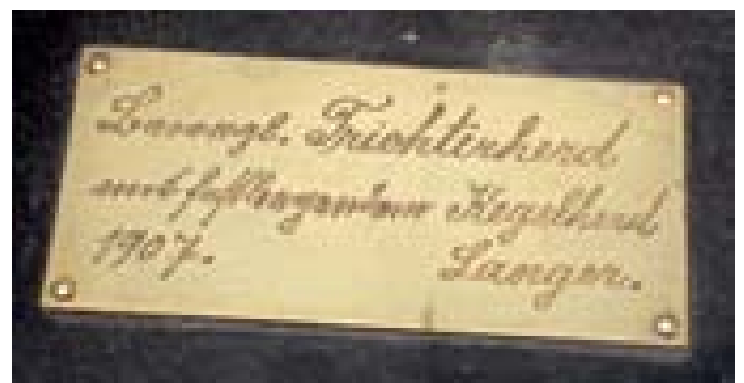 Bewegl. Trichterherd
mit festliegendem Kegelherd
1907. Langer.